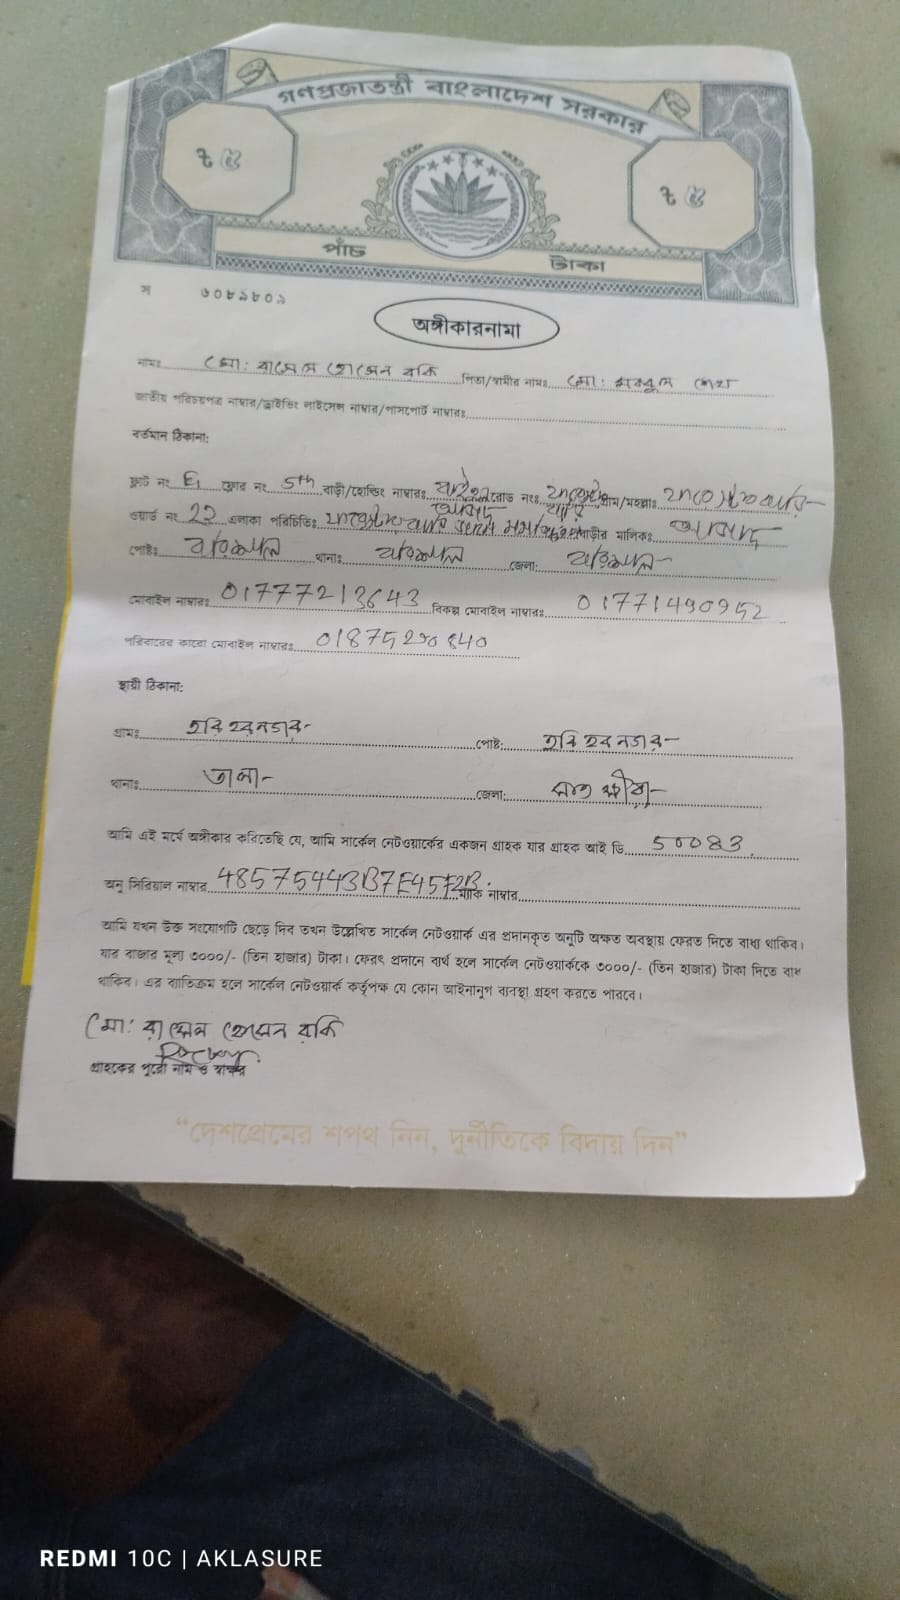 গণপ্রজাতন্ত্রী বাংলাদেশ সরকার
৳ ৫
৳ ৫
পাঁচ টাকা
স ৬০৮৯৮০৯
অঙ্গীকারনামা
নামঃ মো: রাসেল হোসেন রকি পিতা/স্বামীর নামঃ মো: মকবুল শেখ
জাতীয় পরিচয়পত্র নাম্বার/ড্রাইভিং লাইসেন্স নাম্বার/পাসপোর্ট নাম্বারঃ
বর্তমান ঠিকানা:
ফ্লাট নং E1 ফ্লোর নং 5th বাড়ী/হোল্ডিং নাম্বারঃ রোড নংঃ গ্রাম/মহল্লাঃ
ওয়ার্ড নং 22 এলাকা পরিচিতিঃ বাড়ীর মালিকঃ আজাদ
পোষ্টঃ বরিশাল থানাঃ বরিশাল জেলা: বরিশাল
মোবাইল নাম্বারঃ 01777213643 বিকল্প মোবাইল নাম্বারঃ 01771490952
পরিবারের কারো মোবাইল নাম্বারঃ
স্থায়ী ঠিকানা:
গ্রামঃ হরিহরনগর পোষ্ট: হরিহরনগর
থানাঃ তালা জেলা: সাতক্ষীরা
আমি এই মর্মে অঙ্গীকার করিতেছি যে, আমি সার্কেল নেটওয়ার্কের একজন গ্রাহক যার গ্রাহক আই ডি 50083
অনু সিরিয়াল নাম্বার 48575443B7E45F2B ম্যাক নাম্বার
আমি যখন উক্ত সংযোগটি ছেড়ে দিব তখন উল্লেখিত সার্কেল নেটওয়ার্ক এর প্রদানকৃত অনুটি অক্ষত অবস্থায় ফেরত দিতে বাধ্য থাকিব।
যার বাজার মূল্য ৩০০০/- (তিন হাজার) টাকা। ফেরৎ প্রদানে ব্যর্থ হলে সার্কেল নেটওয়ার্ককে ৩০০০/- (তিন হাজার) টাকা দিতে বাধ্য
থাকিব। এর ব্যতিক্রম হলে সার্কেল নেটওয়ার্ক কর্তৃপক্ষ যে কোন আইনানুগ ব্যবস্থা গ্রহণ করতে পারবে।
মো: রাসেল হোসেন রকি
গ্রাহকের পুরো নাম ও স্বাক্ষর
"দেশপ্রেমের শপথ নিন, দুর্নীতিকে বিদায় দিন"
REDMI 10C | AKLASURE